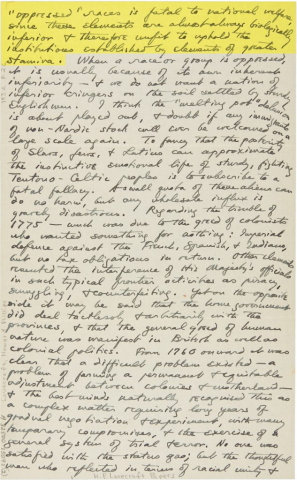 "oppressed" races is fatal to national welfare,
since these elements are almost always biologically
inferior & therefore unfit to uphold the
institutions established by elements of greater
stamina. When a race or group is oppressed,
it is usually because of its own inherent
inferiority — & we do not want a nation of
inferior cringers on the soil settled by sturdy
Englishmen. I think the "melting pot" delusion
is about played out, & doubt if any immigrants
of non-Nordic stock will ever be welcomed on a
large scale again. To fancy that the
of Slavs, Jews, & Latins can approximate
the instinctive emotional life of sturdy, fighting
Teutono-Celtic peoples is to subscribe to a
fatal fallacy. A small quota of these aliens can
do no harm, but any wholesale influx is
gravely disastrous. Regarding the trouble of
1775 — much was due to the greed of colonists
who wanted something for nothing: Imperial
defense against the French, Spanish, & Indians,
but no tax obligations in return. Other elements
resented the interference of His Majesty's officials
in such typical frontier activities as piracy,
smuggling, & counterfeiting. Yet on the opposite
side it may be said that the home government
did deal tactlessly & arbitrarily with the
provinces, & that the general greed of human
nature was manifest in British as well as
colonial politics. From 1760 onward it was
clear that a difficult problem existed — a
problem of permanent & equitable
adjustment between colonies & motherland —
& the best minds naturally recognised this as
a complex matter requiring long years of
gradual negotiation & experiment, with many
temporary compromises, & the exercise of a
general system of trial & error. No one was
satisfied with the status quo; but the thoughtful
men who reflected in terms of racial unity &